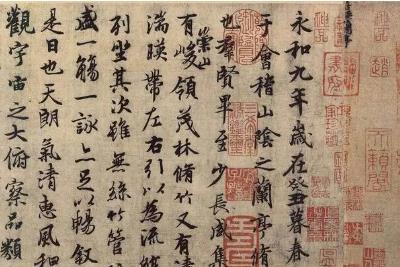 永和九年歲在癸丑暮春
于會稽山陰之蘭亭脩
也羣賢畢至少長咸集
崇山
有峻領茂林脩竹又有清
湍暎帶左右引以為流
列坐其次雖無絲竹管
盛一觴一詠亦足以暢叙
是日也天朗氣清惠風和
觀宇宙之大俯察品類